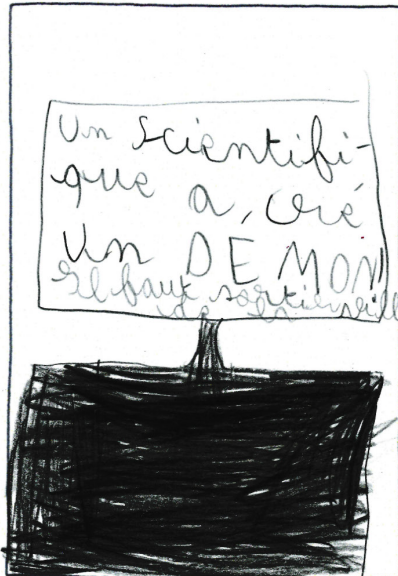 Un scientifi-
que a, créé
Un DEMON
Il faut sortir
de la ville